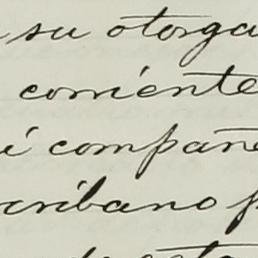 su otorga
corriente
í compañe
cribano p